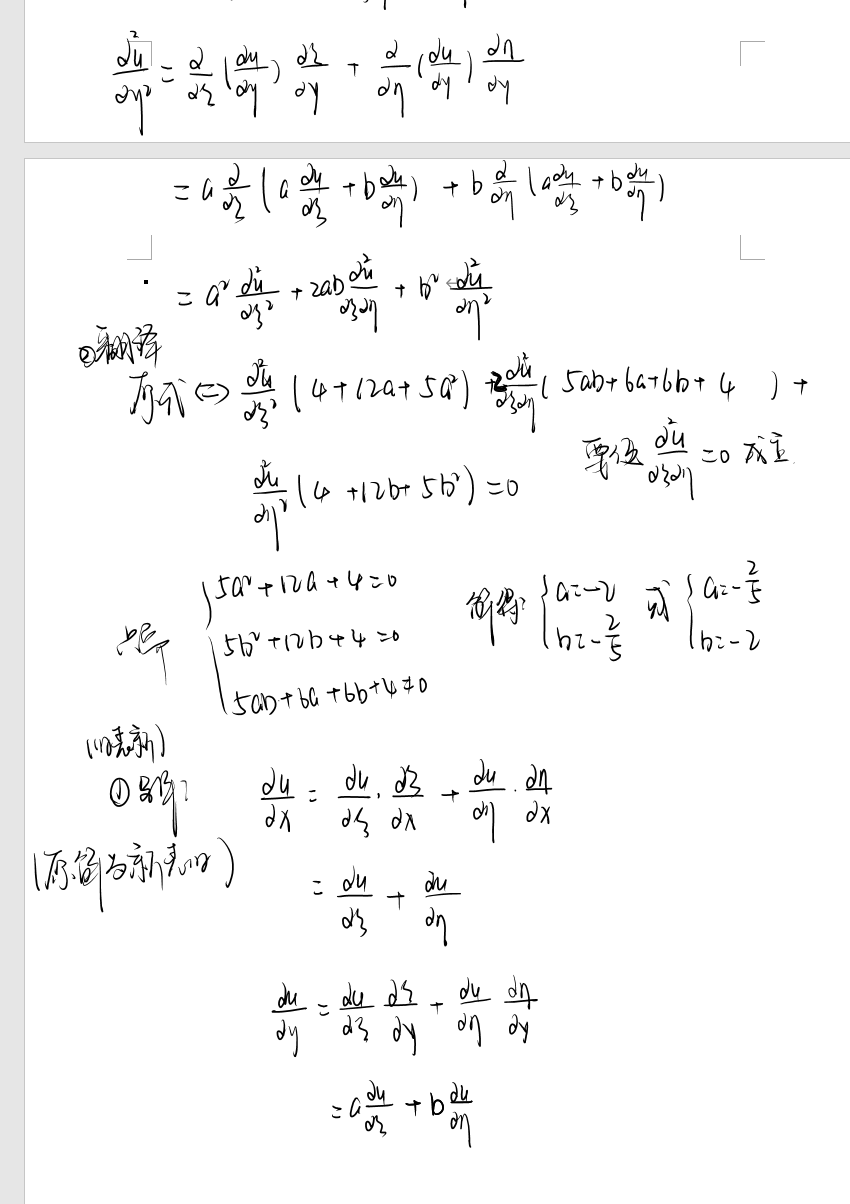 ∂²u/∂y² = ∂/∂ξ (∂u/∂y) ∂ξ/∂y + ∂/∂η (∂u/∂y) ∂η/∂y
= a ∂/∂ξ (a ∂u/∂ξ + b ∂u/∂η) + b ∂/∂η (a ∂u/∂ξ + b ∂u/∂η)
= a² ∂²u/∂ξ² + 2ab ∂²u/∂ξ∂η + b² ∂²u/∂η²
②翻译
原式 ⇔ ∂²u/∂ξ² (4+12a+5a²) + 2 ∂²u/∂ξ∂η (5ab+6a+6b+4) +
∂²u/∂η² (4+12b+5b²) = 0
要使 ∂²u/∂ξ∂η = 0 成立
5a²+12a+4=0
5b²+12b+4=0
5ab+6a+6b+4≠0
解得: { a=-2 b=-2/5 或 { a=-2/5 b=-2
(旧表新)
① 导:
∂u/∂x = ∂u/∂ξ · ∂ξ/∂x + ∂u/∂η · ∂η/∂x
(原 为新表旧)
= ∂u/∂ξ + ∂u/∂η
∂u/∂y = ∂u/∂ξ ∂ξ/∂y + ∂u/∂η ∂η/∂y
= a ∂u/∂ξ + b ∂u/∂η